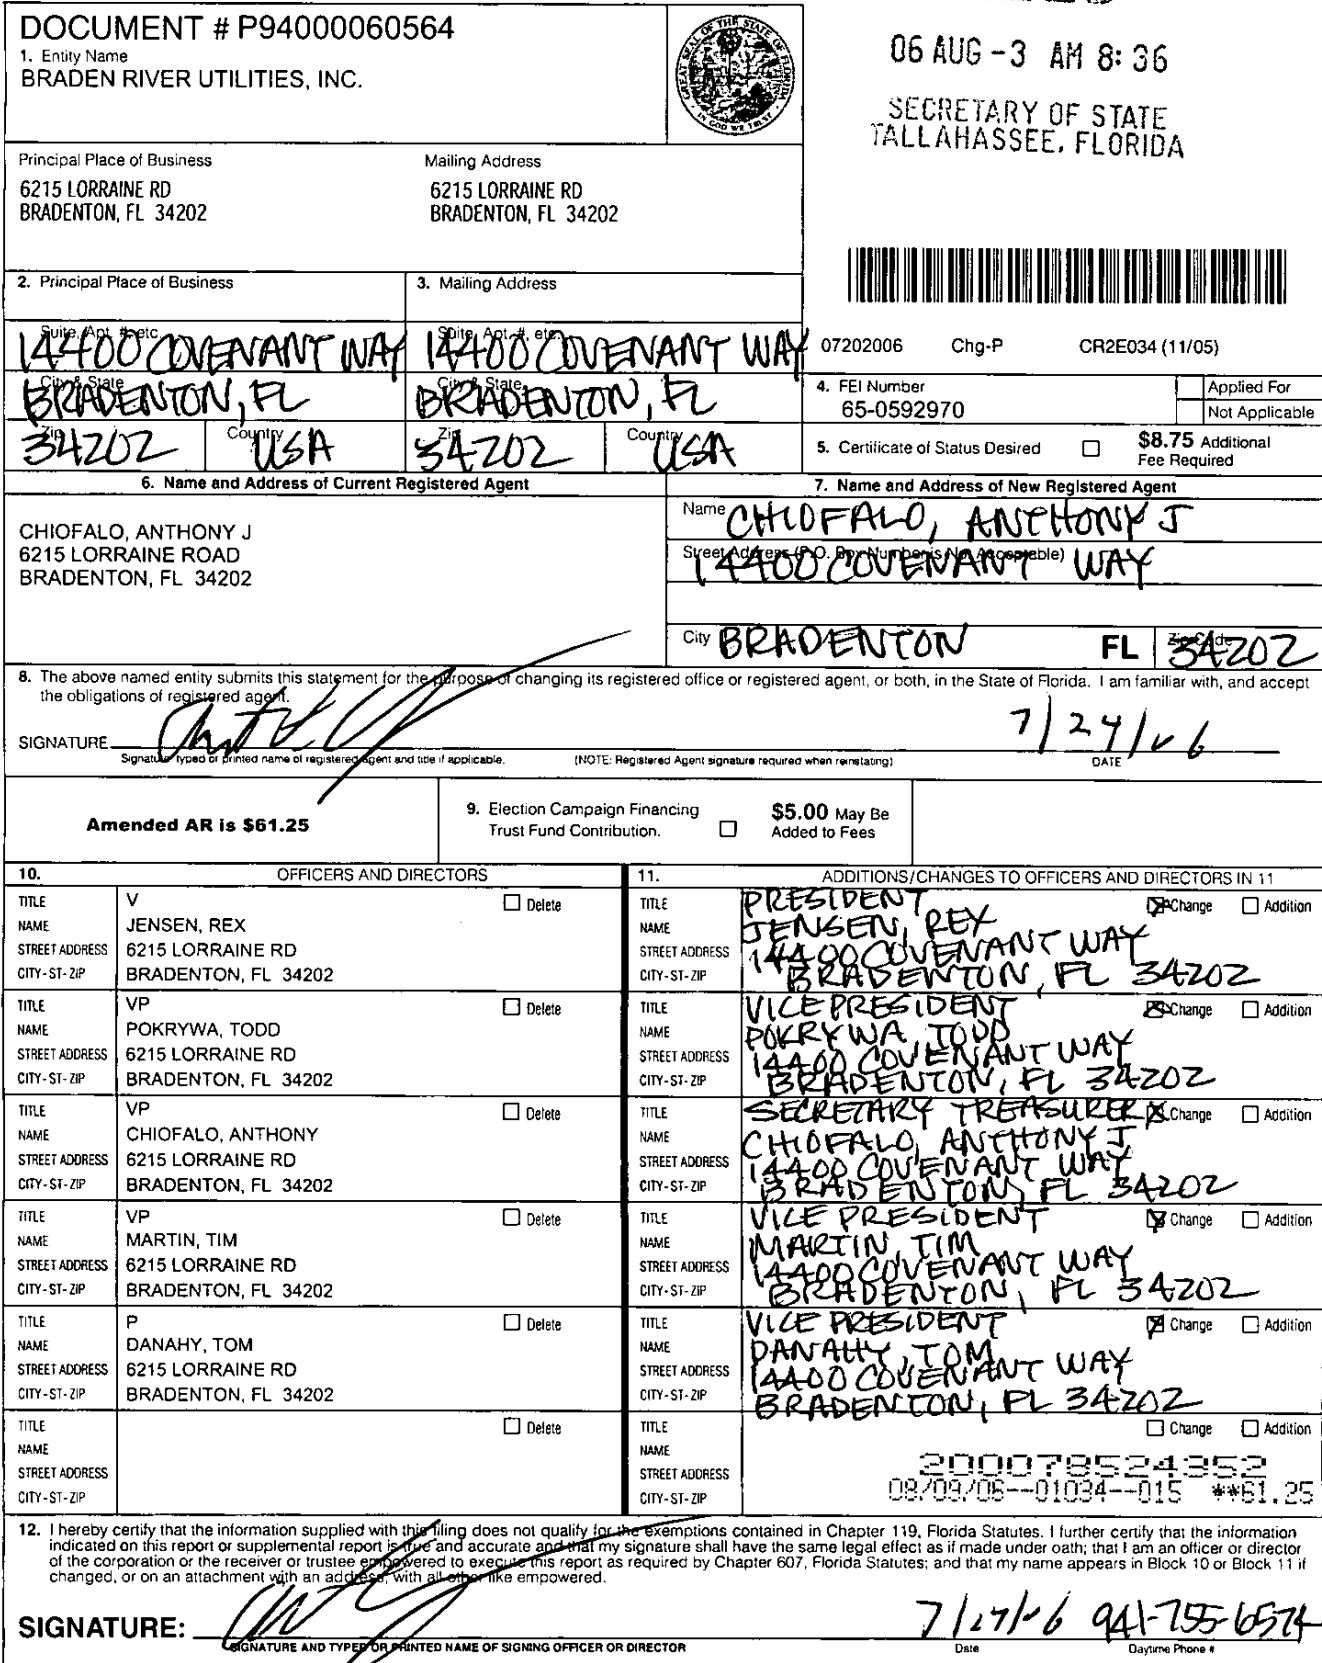 DOCUMENT # P94000060564
1. Entity Name
BRADEN RIVER UTILITIES, INC.
GREAT SEAL OF THE STATE OF FLORIDA
IN GOD WE TRUST
06 AUG -3 AM 8:36
SECRETARY OF STATE
TALLAHASSEE, FLORIDA
Principal Place of Business
6215 LORRAINE RD
BRADENTON, FL 34202
Mailing Address
6215 LORRAINE RD
BRADENTON, FL 34202
2. Principal Place of Business
3. Mailing Address
Suite, Apt. #, etc.
14400 COVENANT WAY
Suite, Apt. #, etc.
14400 COVENANT WAY
City & State
BRADENTON, FL
City & State
BRADENTON, FL
Zip
34202
Country
USA
Zip
34202
Country
USA
07202006 Chg-P CR2E034 (11/05)
4. FEI Number
65-0592970
Applied For
Not Applicable
5. Certificate of Status Desired
$8.75 Additional
Fee Required
6. Name and Address of Current Registered Agent
CHIOFALO, ANTHONY J
6215 LORRAINE ROAD
BRADENTON, FL 34202
7. Name and Address of New Registered Agent
Name CHIOFALO, ANTHONY J
Street Address (P.O. Box Number is Not Acceptable)
14400 COVENANT WAY
City BRADENTON FL Zip Code 34202
8. The above named entity submits this statement for the purpose of changing its registered office or registered agent, or both, in the State of Florida. I am familiar with, and accept
the obligations of registered agent.
SIGNATURE 7/24/06
Signature, typed or printed name of registered agent and title if applicable. (NOTE: Registered Agent signature required when reinstating) DATE
Amended AR is $61.25
9. Election Campaign Financing
Trust Fund Contribution.
$5.00 May Be
Added to Fees
10. OFFICERS AND DIRECTORS
TITLE V Delete
NAME JENSEN, REX
STREET ADDRESS 6215 LORRAINE RD
CITY-ST-ZIP BRADENTON, FL 34202
TITLE VP Delete
NAME POKRYWA, TODD
STREET ADDRESS 6215 LORRAINE RD
CITY-ST-ZIP BRADENTON, FL 34202
TITLE VP Delete
NAME CHIOFALO, ANTHONY
STREET ADDRESS 6215 LORRAINE RD
CITY-ST-ZIP BRADENTON, FL 34202
TITLE VP Delete
NAME MARTIN, TIM
STREET ADDRESS 6215 LORRAINE RD
CITY-ST-ZIP BRADENTON, FL 34202
TITLE P Delete
NAME DANAHY, TOM
STREET ADDRESS 6215 LORRAINE RD
CITY-ST-ZIP BRADENTON, FL 34202
TITLE Delete
NAME
STREET ADDRESS
CITY-ST-ZIP
11. ADDITIONS/CHANGES TO OFFICERS AND DIRECTORS IN 11
TITLE PRESIDENT Change Addition
NAME JENSEN, REX
STREET ADDRESS 14400 COVENANT WAY
CITY-ST-ZIP BRADENTON, FL 34202
TITLE VICE PRESIDENT Change Addition
NAME POKRYWA, TODD
STREET ADDRESS 14400 COVENANT WAY
CITY-ST-ZIP BRADENTON, FL 34202
TITLE SECRETARY TREASURER Change Addition
NAME CHIOFALO, ANTHONY J
STREET ADDRESS 14400 COVENANT WAY
CITY-ST-ZIP BRADENTON, FL 34202
TITLE VICE PRESIDENT Change Addition
NAME MARTIN, TIM
STREET ADDRESS 14400 COVENANT WAY
CITY-ST-ZIP BRADENTON, FL 34202
TITLE VICE PRESIDENT Change Addition
NAME DANAHY, TOM
STREET ADDRESS 14400 COVENANT WAY
CITY-ST-ZIP BRADENTON, FL 34202
TITLE Change Addition
NAME
STREET ADDRESS 200078524352
CITY-ST-ZIP 08/09/06--01034--015 **61.25
12. I hereby certify that the information supplied with this filing does not qualify for the exemptions contained in Chapter 119, Florida Statutes. I further certify that the information
indicated on this report or supplemental report is true and accurate and that my signature shall have the same legal effect as if made under oath; that I am an officer or director
of the corporation or the receiver or trustee empowered to execute this report as required by Chapter 607, Florida Statutes; and that my name appears in Block 10 or Block 11 if
changed, or on an attachment with an address, with all other like empowered.
SIGNATURE: 7/27/06 941-755-6574
SIGNATURE AND TYPED OR PRINTED NAME OF SIGNING OFFICER OR DIRECTOR Date Daytime Phone #